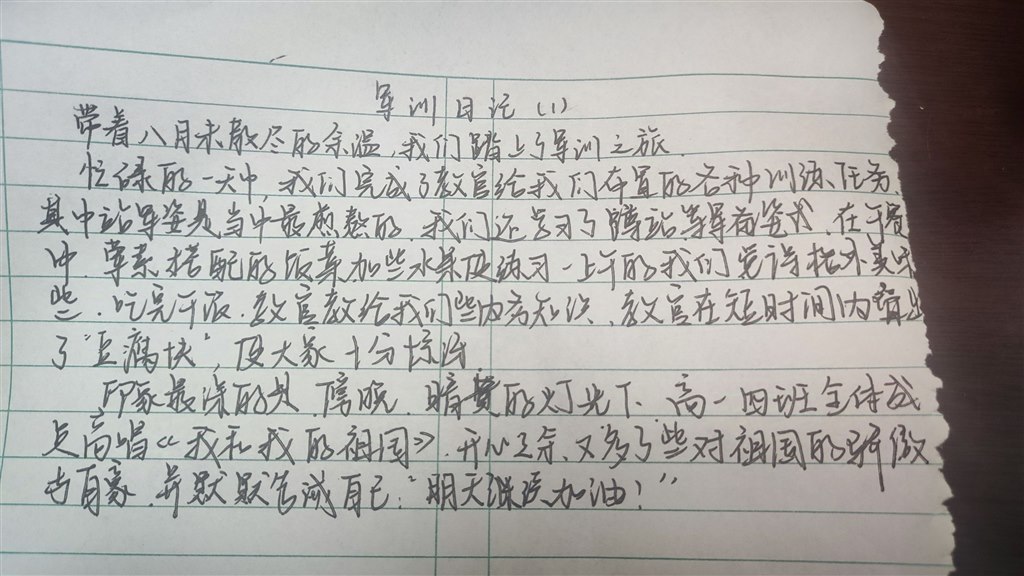 军训日记(1)
带着八月未散尽的余温,我们踏上了军训之旅.
忙碌的一天中,我们完成了教官给我们布置的各种训练任务.
其中站军姿是当中最煎熬的.我们还学习了蹲站等军姿.在午餐
中.荤素搭配的饭菜加些水果使练习一上午的我们觉得格外美味
些.吃完午饭.教官教给我们些内务知识.教官在短时间内
了"豆腐块",使大家十分惊讶
印象最深的是.傍晚.暗黄的灯光下.高一四班全体成
员高唱《我和我的祖国》.开心之余,又多了些对祖国的骄傲
与自豪.并默默告诫自己:"明天继续加油!"